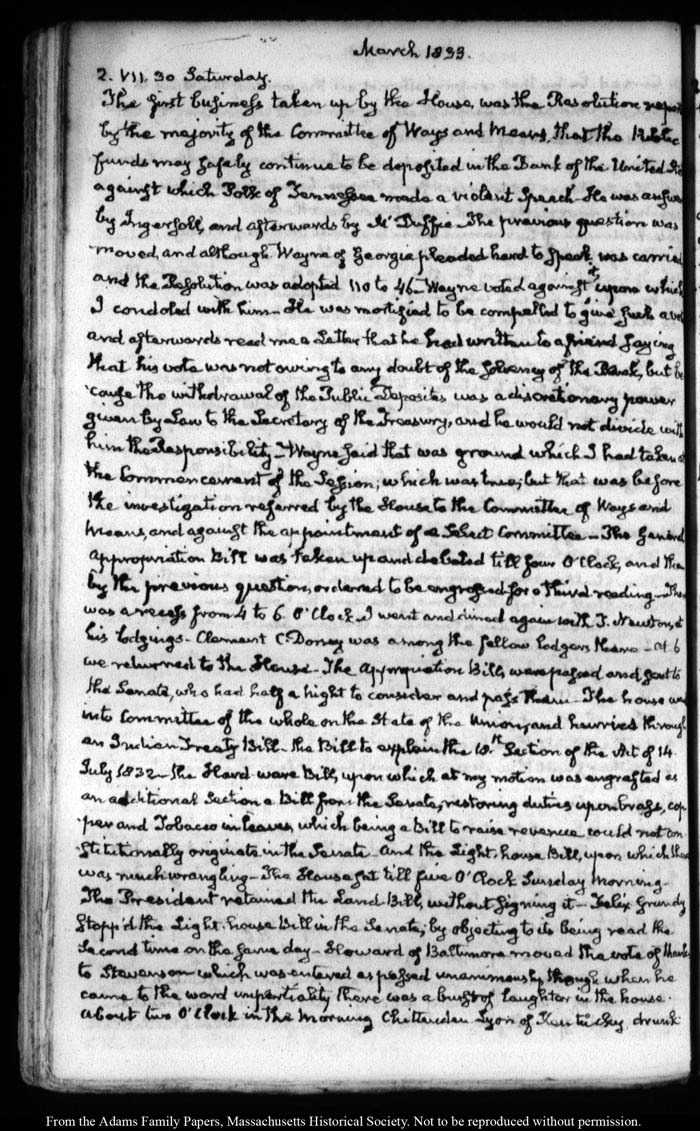 March 1833.
2. VII. 30 Saturday.
The first business taken up by the House, was the Resolution
by the majority of the Committee of Ways and Means, that the Public
funds may safely continue to be deposited in the Bank of the United
against which Polk of Tennessee made a violent Speech. He was
by Ingersoll, and afterwards by Mc Duffie. The previous question was
moved, and although Wayne of Georgia pleaded hard to speak, was carried
and the Resolution was adopted 110 to 46 — Wayne voted against it, upon which
I condoled with him — He was mortified to be compelled to give such a
and afterwards read me a Letter that he had written to a friend saying
that his vote was not owing to any doubt of the solvency of the Bank, but be
'cause the withdrawal of the Public Deposites was a discretionary power
given by Law to the Secretary of the Treasury, and he would not divide with
him the Responsibility — Wayne said that was ground which I had taken
the Commencement of the Session; which was true; but that was before
the investigation referred by the House to the Committee of Ways and
Means, and against the appointment of a Select Committee — The General
Appropriation Bill was taken up and debated till four O'Clock, and then
by the previous question, ordered to be engrossed for a third reading —
was a recess from 4 to 6 O'Clock. I went and dined again with T. Newton, at
his lodgings — Clement C. Clay was among the fellow lodgers there — At 6
we returned to the House — The Appropriation Bills were passed and sent to
the Senate, who had half a night to consider and pass them — The house
into Committee of the whole on the State of the Union, and hurried through
an Indian Treaty Bill — the Bill to explain the 18th Section of the Act of 14.
July 1832 — the Hard ware Bill, upon which at my motion was engrafted as
an additional Section a Bill from the Senate, restoring duties upon brass, cop
per and Tobacco in leaves, which being a Bill to raise revenue could not con
stitutionally originate in the Senate — And the Light-house Bill, upon which there
was much wrangling — The House sat till five O'Clock Sunday morning —
The President retained the Land Bill, without signing it — Felix Grundy
stopp'd the Light-house Bill in the Senate, by objecting to its being read the
second time on the same day — Howard of Baltimore moved the vote of thanks
to Stevenson which was entered as passed unanimously, though when he
came to the word impartiality there was a burst of laughter in the house.
About two O'Clock in the morning Chittenden Lyon of Kentucky, drunk
From the Adams Family Papers, Massachusetts Historical Society. Not to be reproduced without permission.